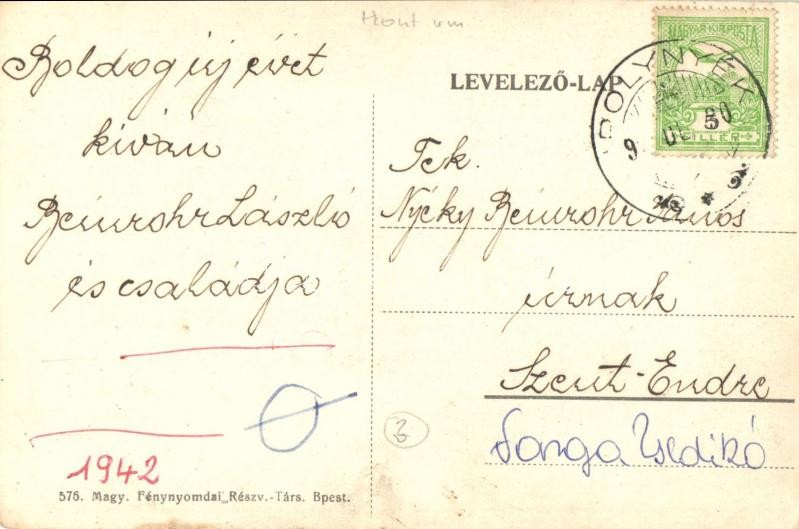 Hont vm
Boldog új évet
kíván
Beinrohr László
és családja
1942
576. Magy. Fénynyomdai Részv.-Társ. Bpest.
LEVELEZŐ-LAP
MAGYAR KIR. POSTA
5
FILLÉR
IPOLYNYÉK
Tek.
Nyéky Beinrohr János
úrnak
Szent-Endre
Ildikó
3